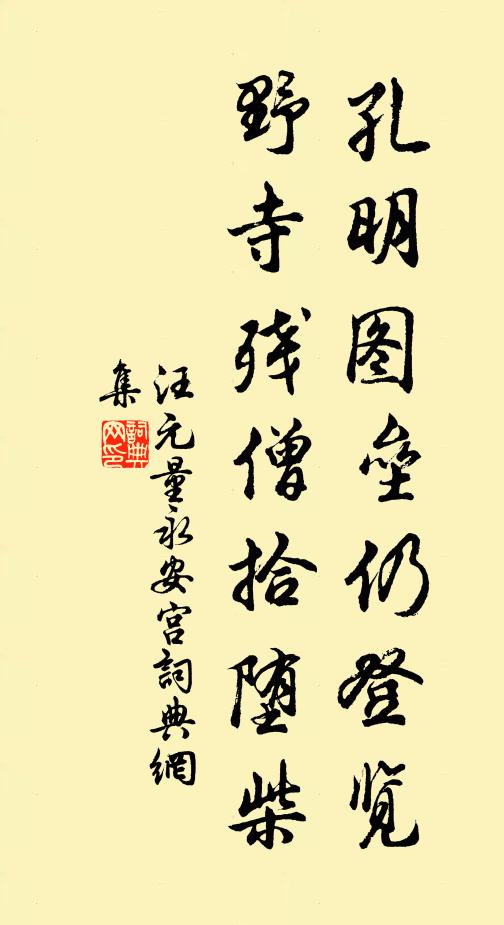 孔明图垒仍登览
野寺残僧拾堕柴
汪元量永安宫詞典網
集
詞典
网印